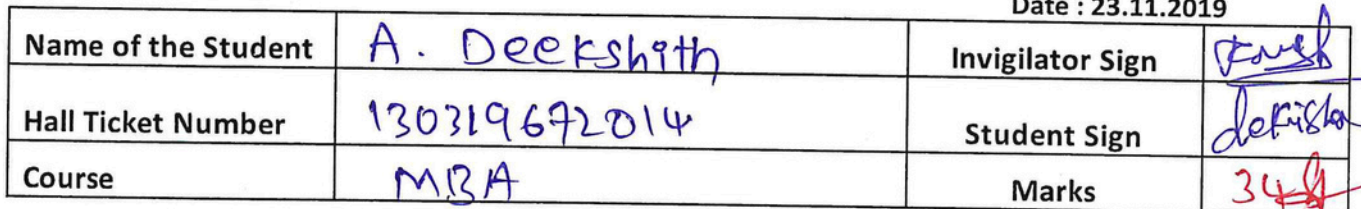 Date : 23.11.2019
Name of the Student A. Deekshith Invigilator Sign
Hall Ticket Number 130319672014 Student Sign
Course MBA Marks 34